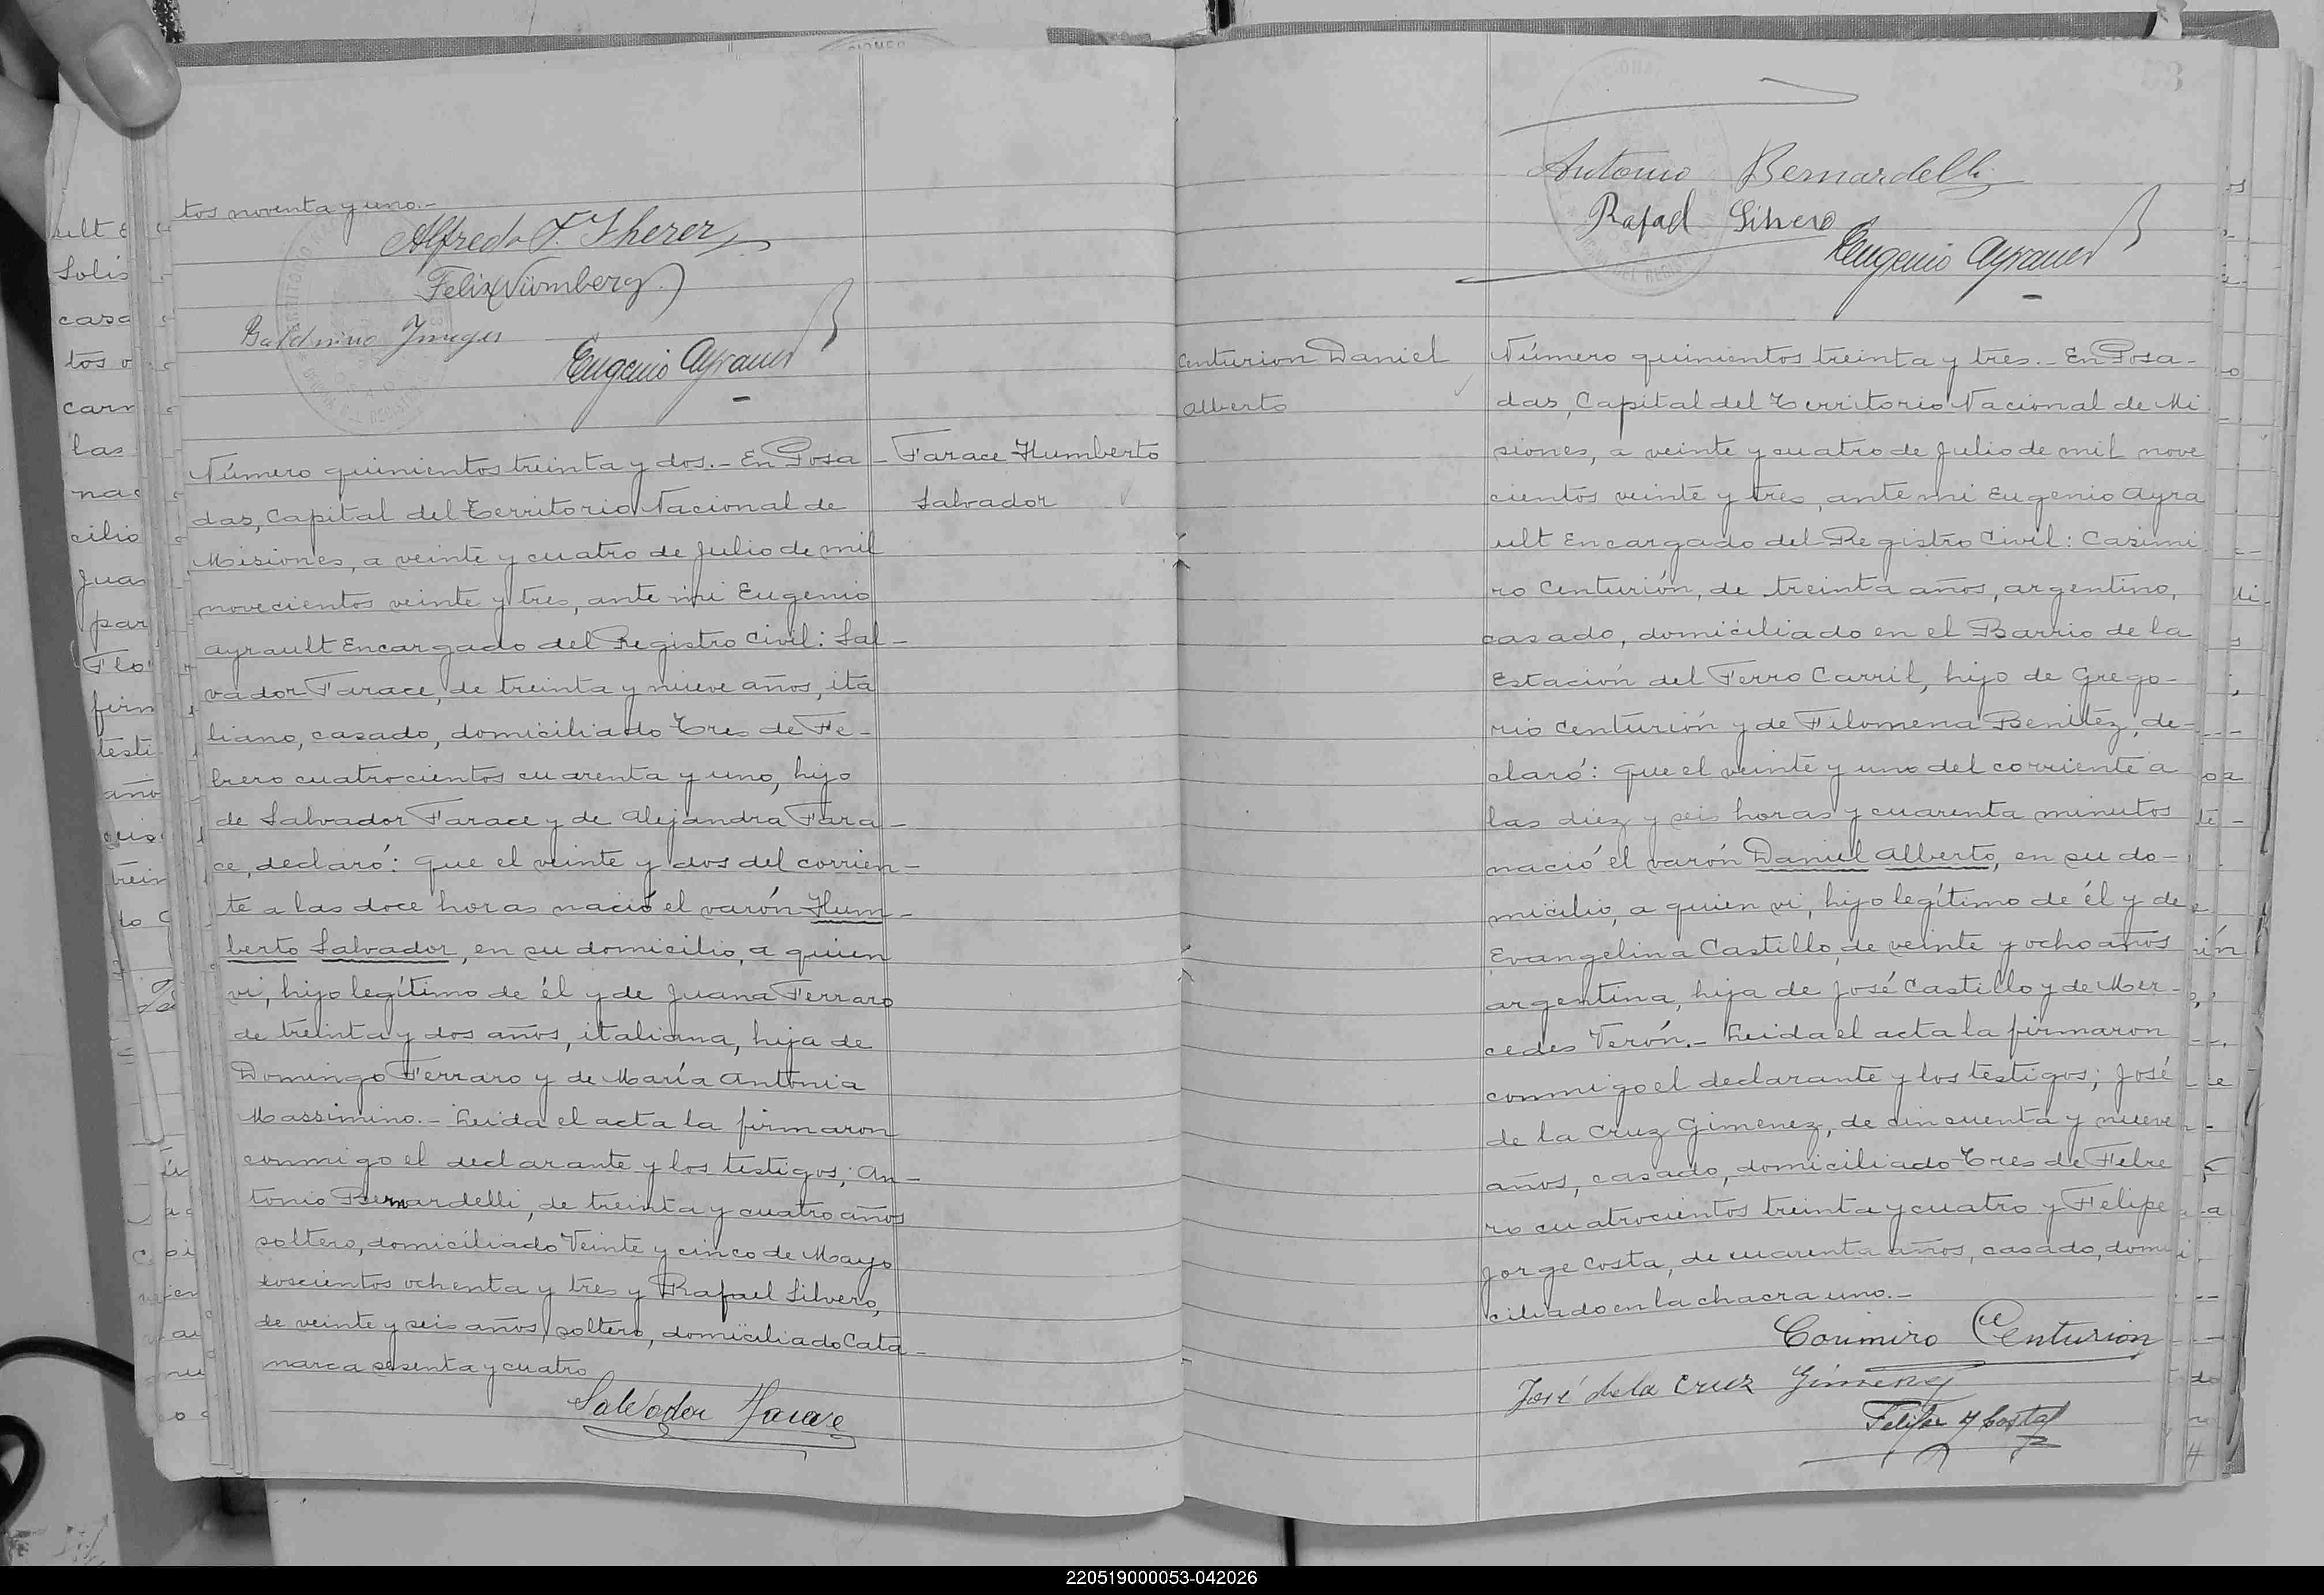 tos noventa y uno.-
Alfredo F. Therer
Felix Nürnberg
Eugenio Ayrault
Farace Humberto
Salvador
Número quinientos treinta y dos.- En Posa-
das, Capital del Territorio Nacional de
Misiones, a veinte y cuatro de Julio de mil
novecientos veinte y tres, ante mi Eugenio
Ayrault Encargado del Registro Civil: Sal-
vador Farace, de treinta y nueve años, ita
liano, casado, domiciliado Tres de Fe-
brero cuatrocientos cuarenta y uno, hijo
de Salvador Farace y de Alejandra Fara-
ce, declaró: que el veinte y dos del corrien-
te a las doce horas nació el varón Hum-
berto Salvador, en su domicilio, a quien
vi, hijo legítimo de él y de Juana Ferraro
de treinta y dos años, italiana, hija de
Domingo Ferraro y de María Antonia
Massimino.- Leida el acta la firmaron
conmigo el declarante y los testigos; An-
tonio Bernardelli, de treinta y cuatro años
soltero, domiciliado Veinte y cinco de Mayo
doscientos ochenta y tres y Rafael Silvero,
de veinte y seis años, soltero, domiciliado Cata-
marca sesenta y cuatro
Salvador Farace
Antonio Bernardelli
Rafael Silvero
Eugenio Ayrault
Centurion Daniel
Alberto
Número quinientos treinta y tres.- En Posa-
das, Capital del Territorio Nacional de Mi
siones, a veinte y cuatro de Julio de mil nove
cientos veinte y tres, ante mi Eugenio Ayra
ult Encargado del Registro Civil: Casimi
ro Centurión, de treinta años, argentino,
casado, domiciliado en el Barrio de la
Estación del Ferro Carril, hijo de Grego-
rio Centurión y de Filomena Benitez, de-
claró: que el veinte y uno del corriente a
las diez y seis horas y cuarenta minutos
nació el varón Daniel Alberto, en su do-
micilio, a quien vi, hijo legítimo de él y de
Evangelina Castillo, de veinte y ocho años
argentina, hija de José Castillo y de Mer-
cedes Verón.- Leida el acta la firmaron
conmigo el declarante y los testigos; José
de la Cruz Gimenez, de cincuenta y nueve
años, casado, domiciliado Tres de Febre
ro cuatrocientos treinta y cuatro y Felipe
Jorge Costa, de cuarenta años, casado, domi
ciliado en la chacra uno.-
Casimiro Centurion
José de la Cruz Gimenez
Felipe J Costa
220519000053-042026